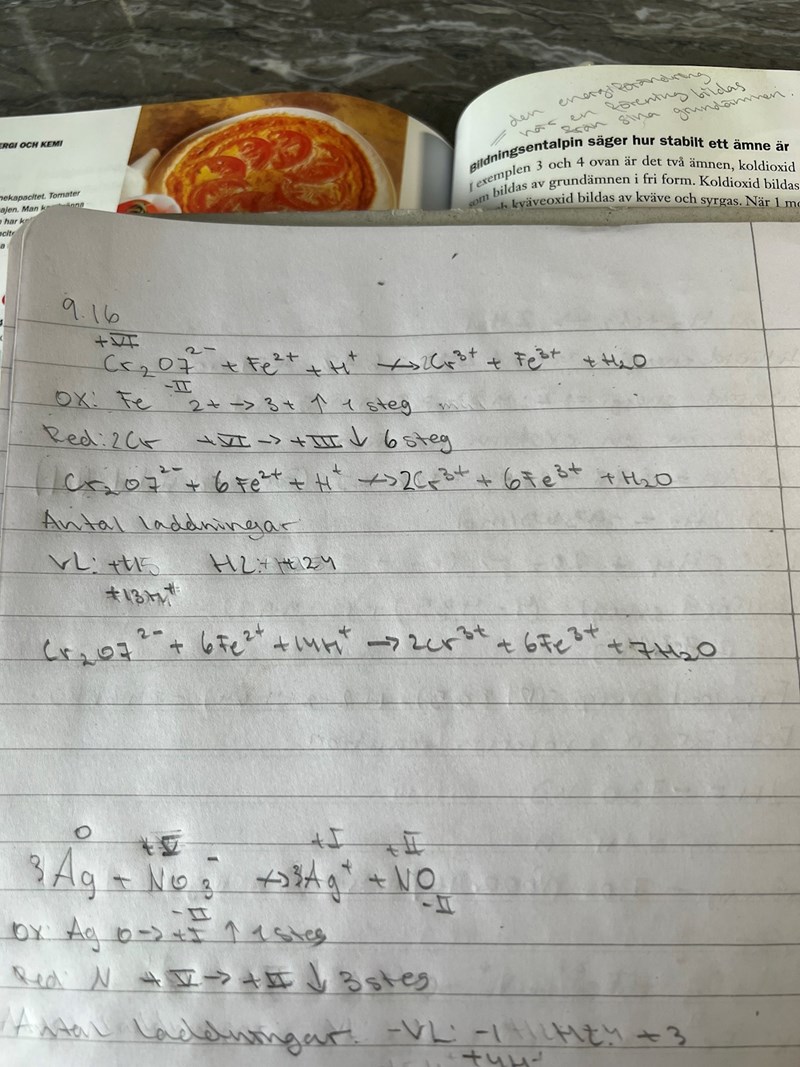 ERGI OCH KEMI
nekapacitet. Tomater
den energiförändring
när en förening bildas
från sina grundämnen.
Bildningsentalpin säger hur stabilt ett ämne är
I exemplen 3 och 4 ovan är det två ämnen, koldioxid
som bildas av grundämnen i fri form. Koldioxid bildas
kväveoxid bildas av kväve och syrgas. När 1 mo
9.16
+VI
Cr₂O7²⁻ + Fe²⁺ + H⁺ → 2Cr³⁺ + Fe³⁺ + H₂O
-II
OX: Fe 2+ → 3+ ↑ 1 steg
Red: 2Cr +VI → +III ↓ 6 steg
Cr₂O7²⁻ + 6Fe²⁺ + H⁺ → 2Cr³⁺ + 6Fe³⁺ + H₂O
Antal laddningar
VL: HL: +24
Cr₂O7²⁻ + 6Fe²⁺ + 14H⁺ → 2Cr³⁺ + 6Fe³⁺ + 7H₂O
0 +V +I +II
3Ag + NO₃⁻ → 3Ag⁺ + NO
-II -II
OX: Ag 0 → +I ↑ 1 steg
Red N +V → +II ↓ 3 steg
Antal laddningar. -VL: -1 +3
+4H⁺